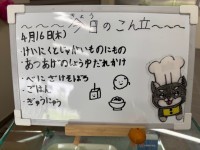 きょう
～～～今日のこん立～～～
4月16日(木)
・けいにくとじゃがいものにもの
・あつあげのしょうゆだれかけ
・べにざけそぼろ
・ごはん
・ぎゅうにゅう